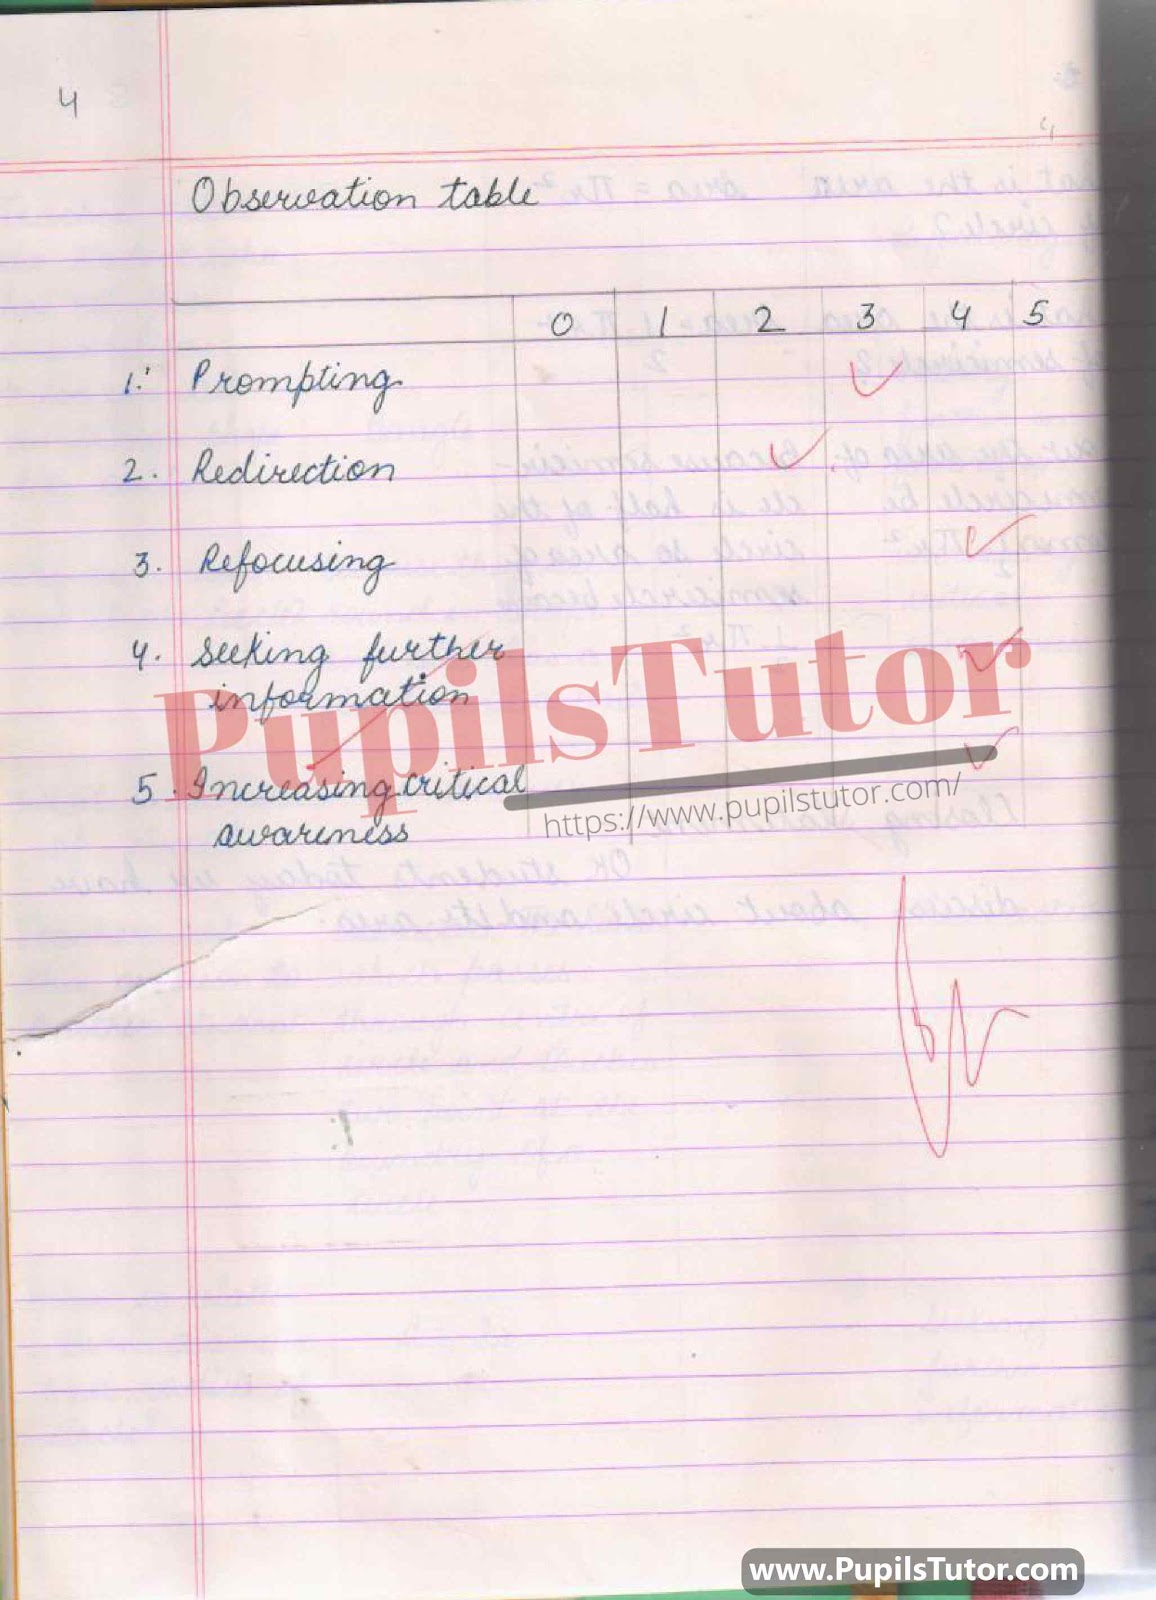 4
4
Observation table
0 1 2 3 4 5
1. Prompting
2. Redirection
3. Refocusing
4. Seeking further
information
5. Increasing critical
awareness
PupilsTutor
https://www.pupilstutor.com/
www.PupilsTutor.com